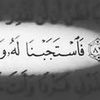 فَٱسْتَجَبْنَا لَهُۥ وَ